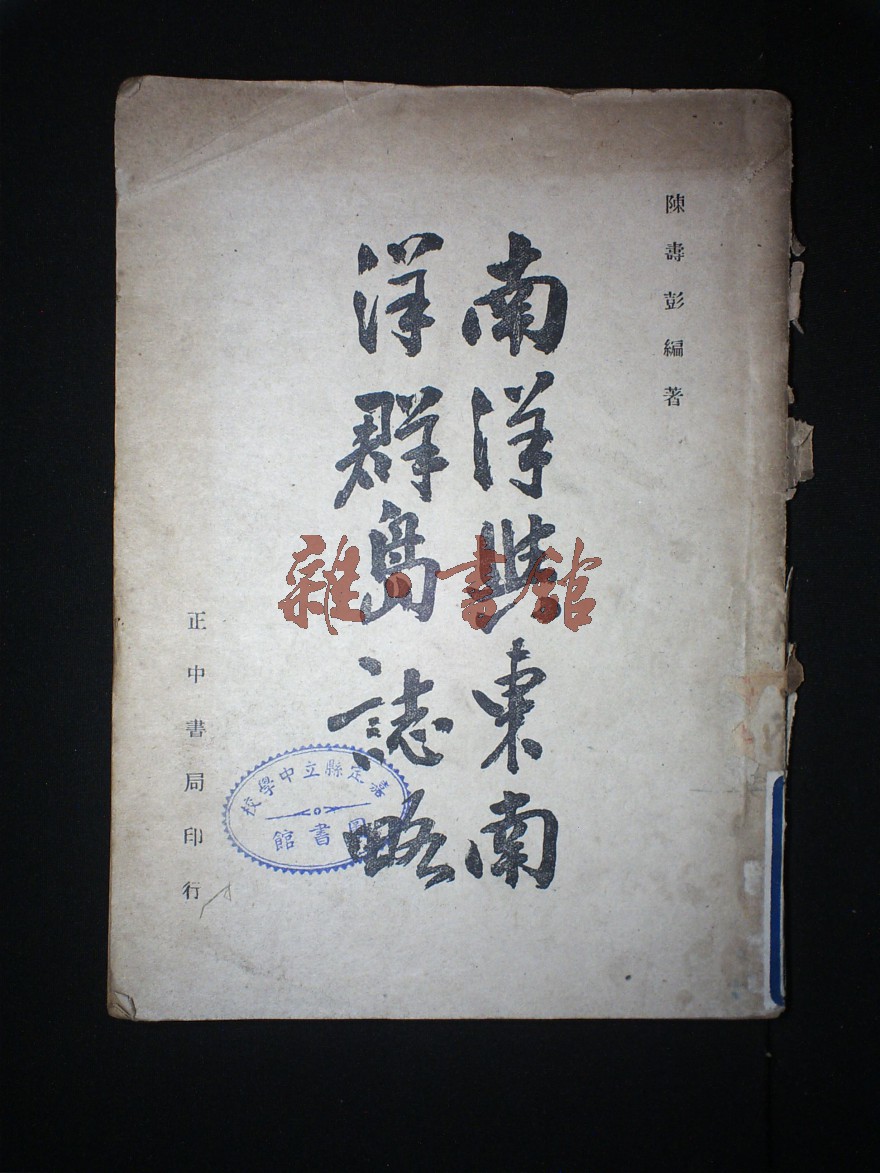 陳壽彭編著
南洋與東南
洋群島誌略
正中書局印行
嘉定縣立中學校
圖書館
雜·書館